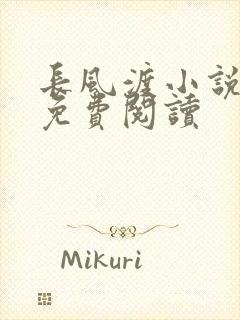 長風渡小說
免費閱讀
Mikuri